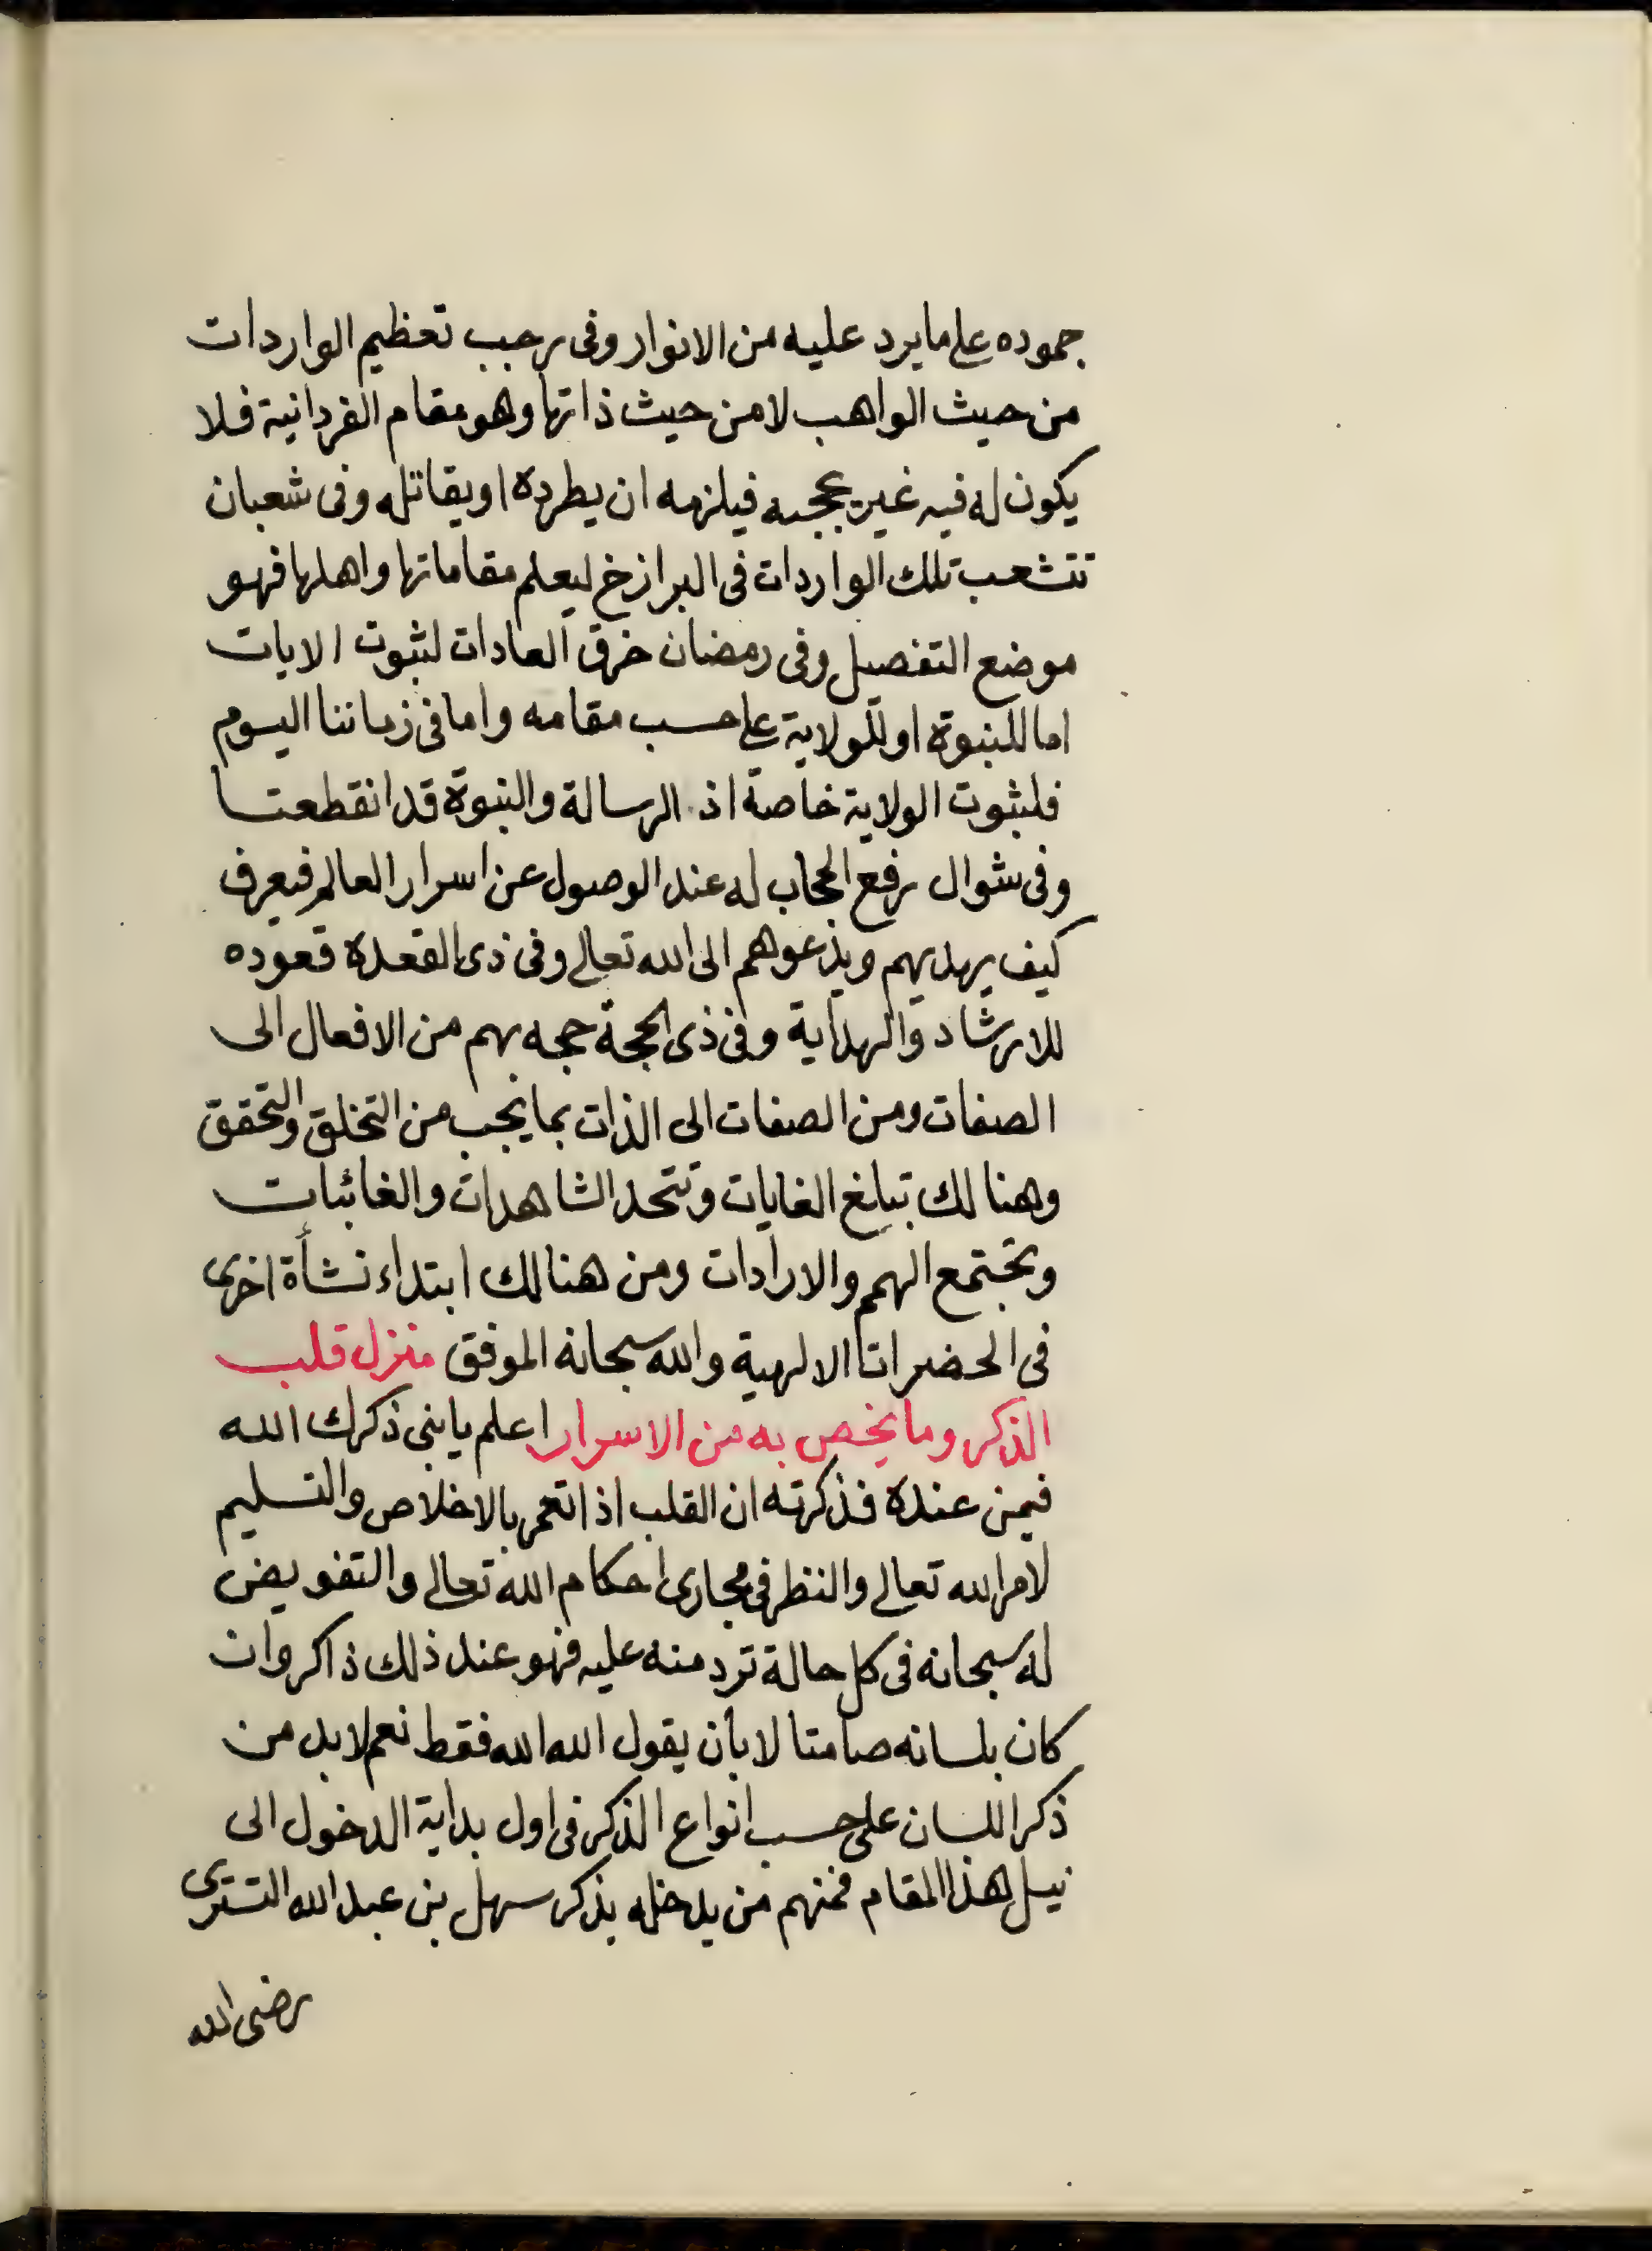 جموده على ما يرد عليه من الانوار وفى رجب تعظيم الواردات
من حيث الواهب لا من حيث ذاتها وهو مقام الفردانية فلا
يكون له فيه غير يحجبه فيلزمه ان يطرده او يقاتله وفى شعبان
تتشعب تلك الواردات فى البرازخ ليعلم مقاماتها واهلها فهو
موضع التفصيل وفى رمضان خرق العادات لثبوت الايات
اما للنبوة او للولاية على حسب مقامه واما فى زماننا اليوم
فلثبوت الولاية خاصة اذ الرسالة والنبوة قد انقطعتا
وفى شوال رفع الحجاب له عند الوصول عن اسرار العالم فيعرف
كيف يهديهم ويدعوهم الى الله تعالى وفى ذى القعدة قعوده
للارشاد والهداية وفى ذى الحجة حجه بهم من الافعال الى
الصفات ومن الصفات الى الذات بما يجب من التخلق والتحقق
وهنا لك تبلغ الغايات وتتحد الشاهدات والغائبات
وتجتمع الهمم والارادات ومن هنا لك ابتداء نشأة اخرى
فى الحضرات الالهية والله سبحانه الموفق منزل قلب
الذكر وما يخص به من الاسرار اعلم يا بنى ذكرك الله
فيمن عنده فذكرته ان القلب اذا تعمر بالاخلاص والتسليم
لامر الله تعالى والنظر فى مجارى احكام الله تعالى والتفويض
له سبحانه فى كل حالة ترد منه عليه فهو عند ذلك ذاكر وان
كان بلسانه صامتا لا بأن يقول الله الله فقط نعم لا بد من
ذكر اللسان على حسب انواع الذكر فى اول بداية الدخول الى
نيل هذا المقام فمنهم من يدخله بذكر سهل بن عبد الله التسترى
رضى الله